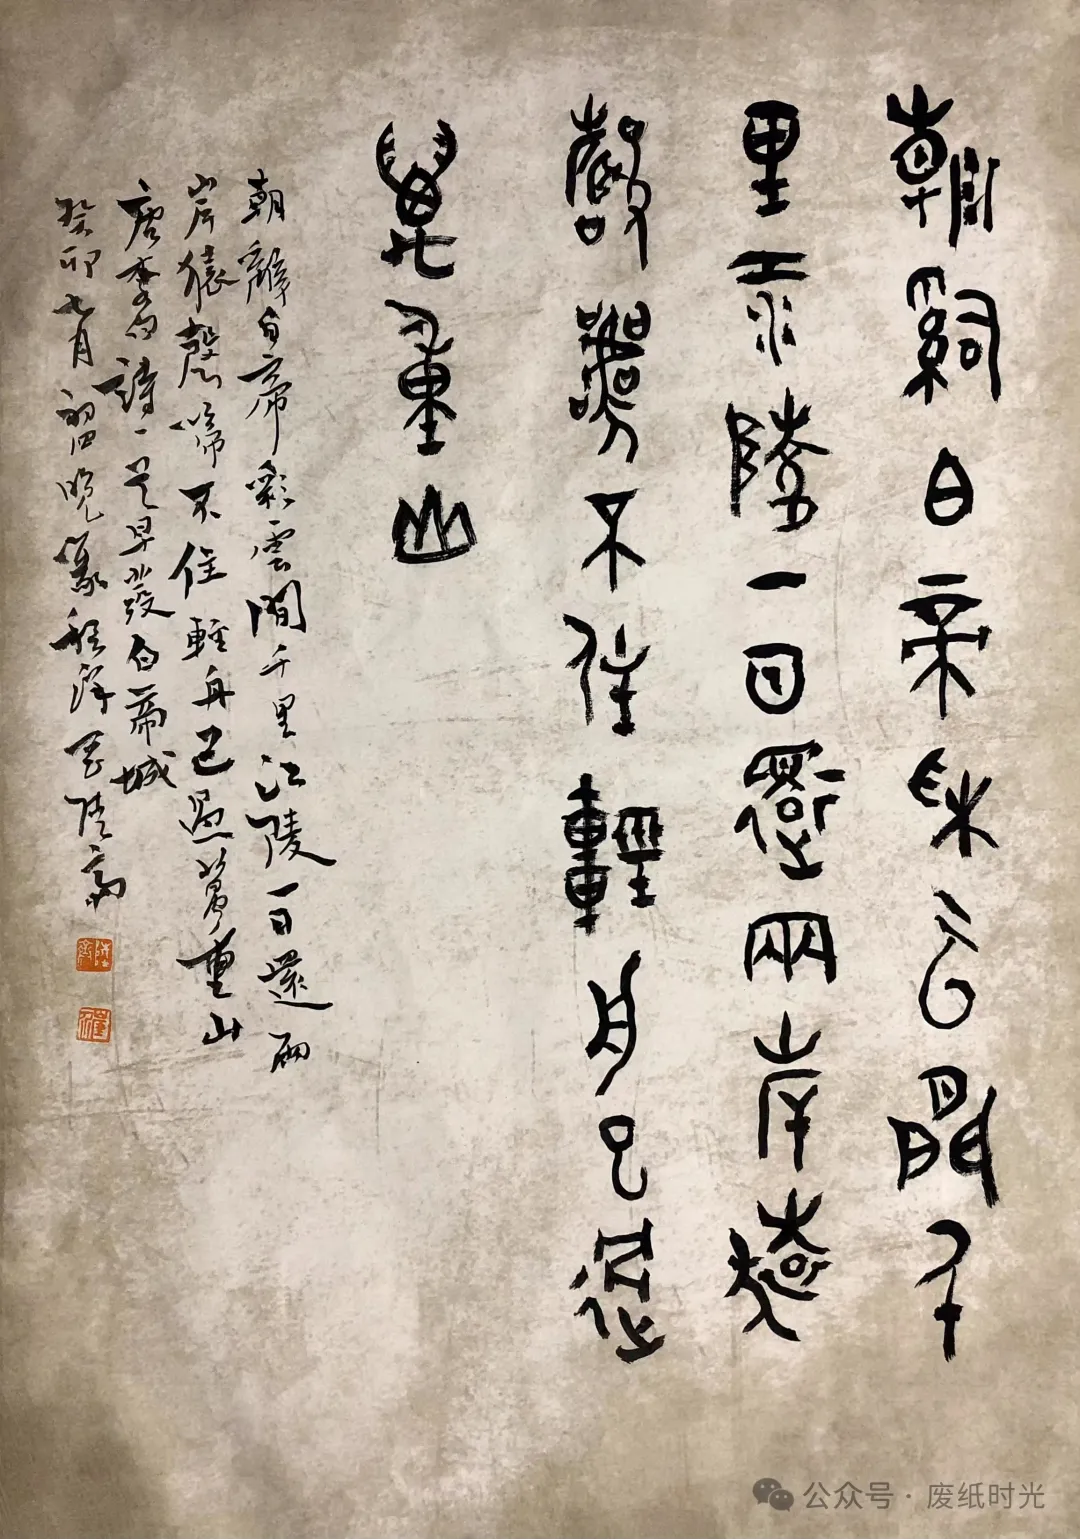 朝辭白帝彩雲間千
里江陵一日還兩岸猿
聲啼不住輕舟已過
萬重山
朝辭白帝彩雲間千里江陵一日還兩
岸猿聲啼不住輕舟已過萬重山
唐李白詩一首早發白帝城
癸卯七月
公众号·废纸时光